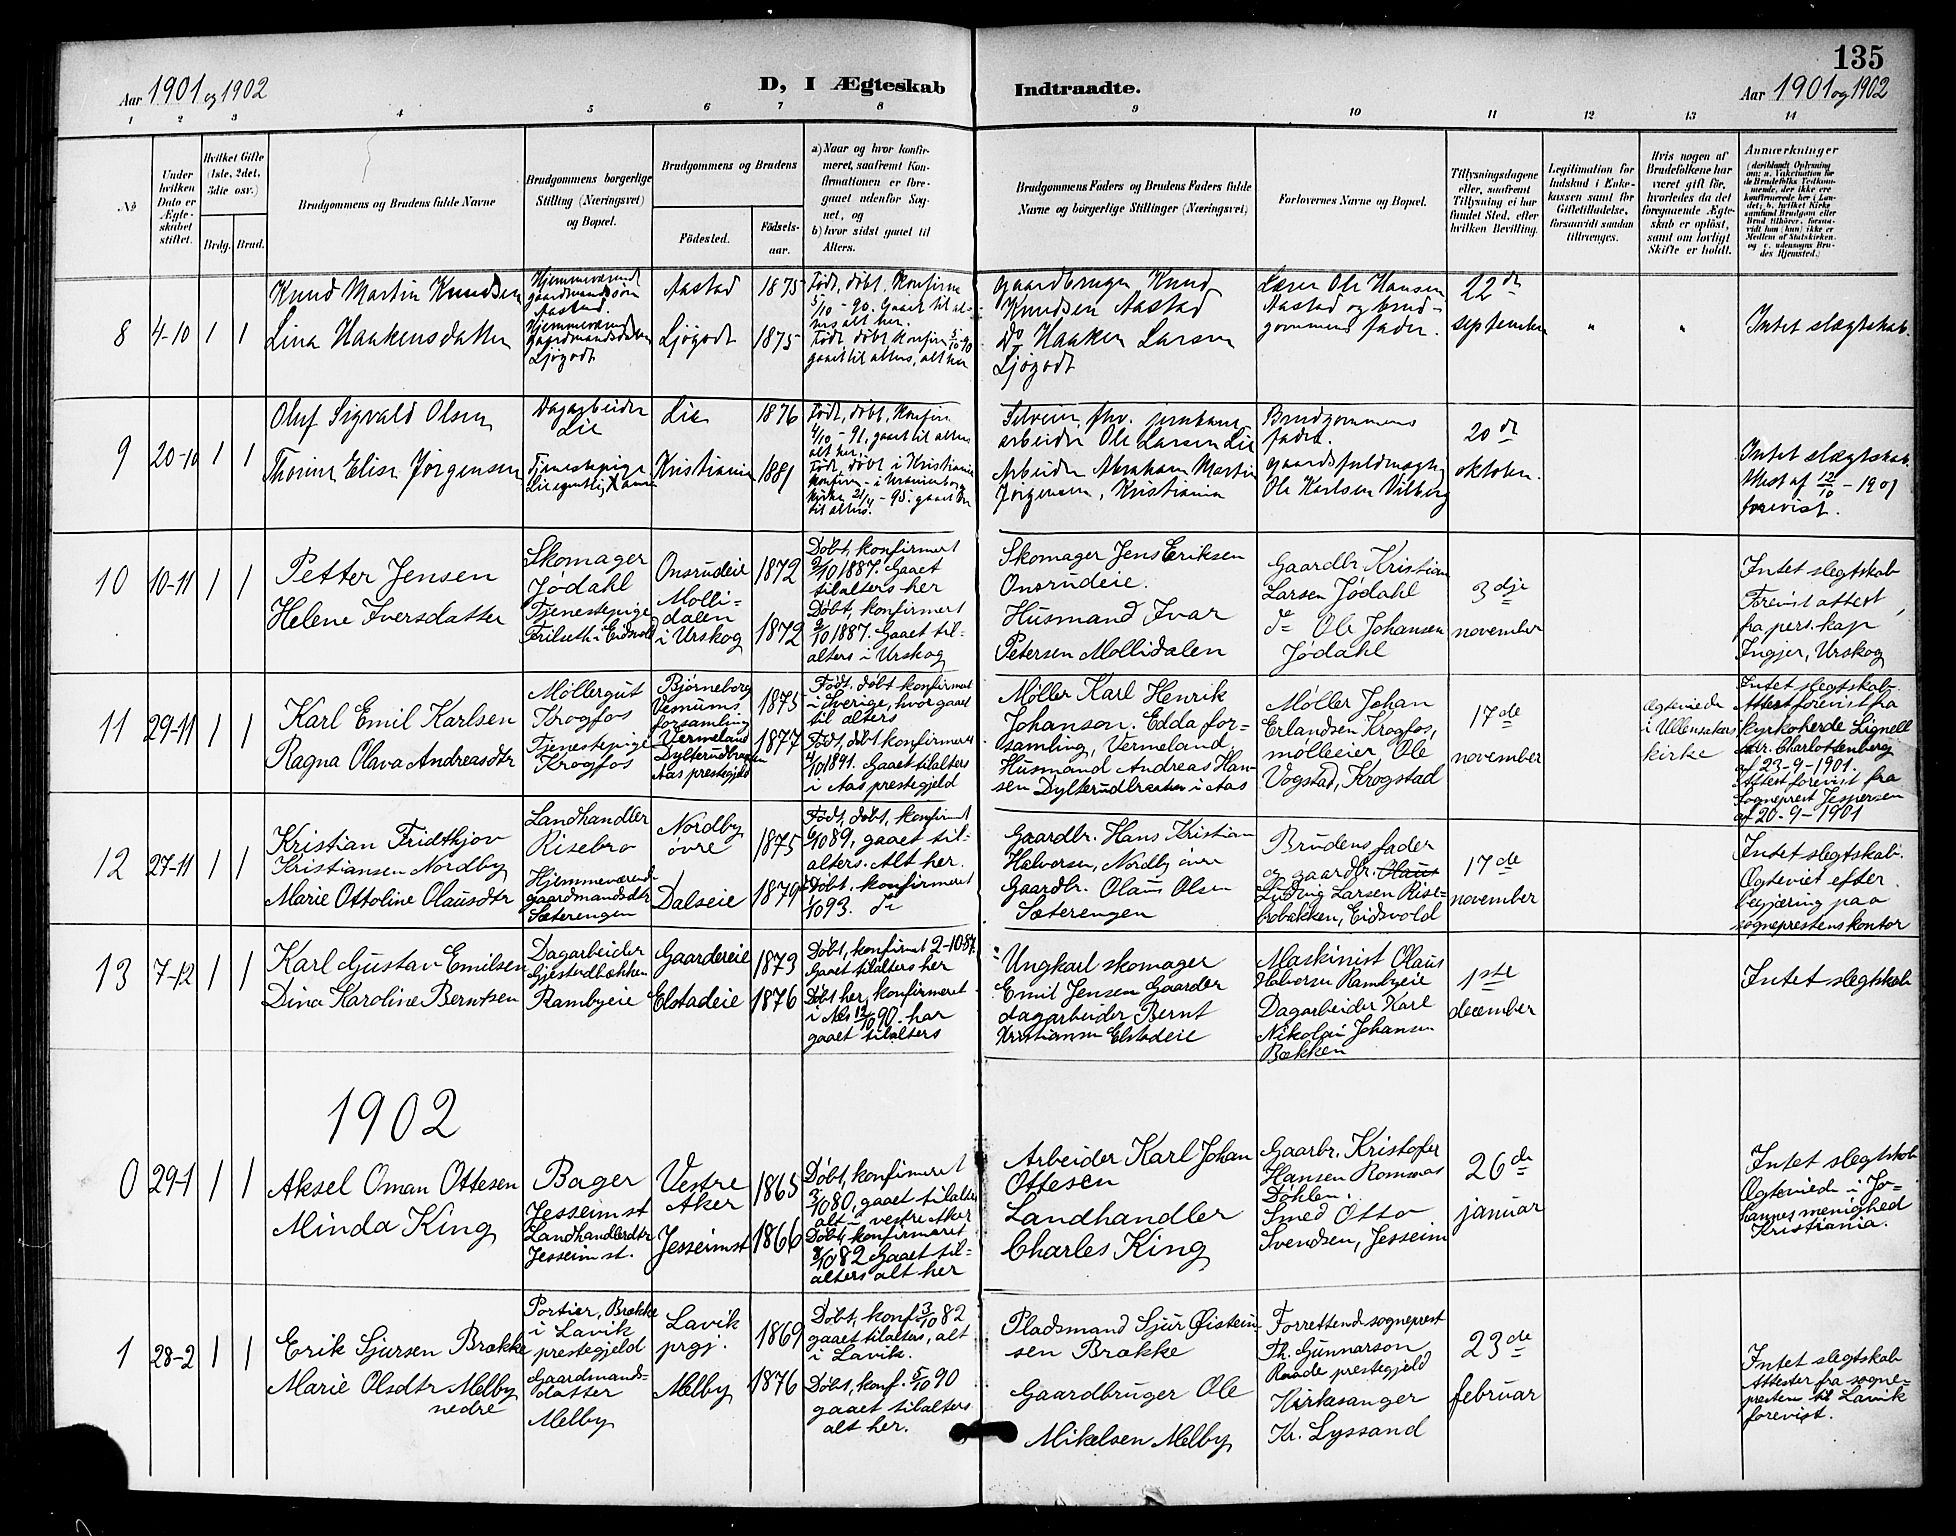 135
Aar 1901 og 1902
D, I Ægteskab
Indtraadte.
Aar 1901 og 1902
1 2 3 4 5 6 7 8 9 10 11 12 13 14
No
Under
hvilken
Dato er
Ægte-
skabet
stiftet.
Hvilket Gifte
(1ste, 2det,
3die osv.)
Brdg. Brud.
Brudgommens og Brudens fulde Navne
Brudgommens borgerlige
Stilling (Næringsvei)
og Bopæl.
Brudgommens og Brudens
Fødested.
Fødsels-
aar.
a) Naar og hvor konfir-
meret, saafremt Kon-
firmationen er fore-
gaaet udenfor Sog-
net, og
b) hvor sidst gaaet til
Alters.
Brudgommens Faders og Brudens Faders fulde
Navne og borgerlige Stillinger (Næringsvei)
Forlovernes Navne og Bopæl.
Tillysningsdagene
eller, saafremt
Tillysning ei har
fundet Sted, efter
hvilken Bevilling.
Legitimation for
Indskud i Enke-
kassen samt for
Giftetilladelse,
forsaavidt saadan
tiltrænges.
Hvis nogen af
Brudefolkene har
været gift før,
hvorledes da det
foregaaende Ægte-
skab er opløst,
samt om lovligt
Skifte er holdt.
Anmærkninger
(deriblandt Oplysning
om: a. Vakcination for
de Brudefolks Vedkom-
mende, der ikke ere
konfirmerede her i Lan-
det; b. hvilket Kirke
samfund Brudgom eller
Brud tilhører, forsaa-
vidt han (hun) ikke er
Medlem af Statskirken,
og c. udensogns Bru-
des Hjemsted.)
8 4-10 1 1
Knud Martin Knudsen
Lina Haakensdatter
Hjemmeværende
gaardmandssøn
Aastad.
Hjemmeværende
gaardmandsdatter
Ljøgodt
Aastad 1875
Ljøgodt 1875
Født, døbt, Konfirm
5/10-90. Gaaet til al-
ters alt her.
Født, døbt, konfirm 5/10 90
gaaet til alters, alt her
gaardbruger Knud
Knudsen Aastad
Do Haaken Larsen
Ljøgodt
Lærer Ole Hansen
Aastad og brud-
gommens fader.
22 de
september
" "
Intet slægtskab.
9 20-10 1 1
Oluf Sigvald Olsen
Thorine Elise Jørgensen
Dagarbeider
Lie
Tjenestepige
Lie
Lie 1876
Kristiania 1881
Født, døbt, konfirm
4/10-91, gaaet til alters
alt her.
Født, døbt i Kristiania
konfirm- i Uranienborg
kirke -95. gaaet
til alters.
Selveier, fhv. jernbane-
arbeider Ole Larsen Lie
Arbeider Abraham Martin
Jørgensen, Kristiania
Brudgommens
fader.
gaardsfuldmægtig
Ole Karlsen Vilberg
20 de
oktober.
Intet slægtskab.
Attest af 12/10-1901
forevist.
10 10-11 1 1
Petter Jensen
Helene Iversdatter
Skomager
Jødahl
Tjenestepige
Frilseth i Eidsvold
Onsrudeie 1872
Molli-
dalen
i Urskog 1872
Døbt, konfirmert
2/10 1887. Gaaet
tilalters her
Døbt, konfirmert
2/10 1887. Gaaet til-
alters i Urskog
Skomager Jens Eriksen
Onsrudeie.
Husmand Ivar
Petersen Mollidalen
Gaardbr Kristian
Larsen Jødahl
do Ole Johansen
Jødahl
3 dje
november
Intet slegtskab
Forevist attest
fra pers. kap
Ingjer, Urskog
11 29-11 1 1
Karl Emil Karlsen
Ragna Olava Andreasdtr
Møllergut
Krogfos
Tjenestepige
Krogfos
Bjørneborg
Vesnums
forsamling
Vermeland 1875
Dylterudbraaten
Aas prestegjeld 1877
Født, døbt konfirmert
i Sverige, hvor gaaet
til alters
Født, døbt konfirmeret
4/10 1891. Gaaet tilalters
i Aas prestegjeld
Møller Karl Henrik
Johanson. Edda for-
samling, Vermeland
Husmand Andreas Han-
sen Dylterudbraaten i Aas
Møller Johan
Erlandsen Krogfos,
mølleeier Ole
Vogstad, Krogstad
17 de
november
Ægteviede
i Ullensakers
kirke
Intet slegtskab
Attest forevist fra
Kyrkoherde Lignell
adr. Charlottenberg
af 23-9-1901.
Attest forevist fra
Sogneprest Jespersen
af 20-9-1901
12 27-11 1 1
Kristian Fridthjov
Kristiansen Nordby
Marie Ottoline Olausdtr
Landhandler
Risebro
Hjemmeværende
gaardmandsdtr
Sæterengen
Nordby
øvre 1875
Dalseie 1879
Født, døbt, konfirmt
6/10 89, gaaet til-
alters. Alt her.
Døbt, konfirmeret
1/10 93. do
Gaardbr. Hans Kristian
Halvorsen, Nordby øvre
Gaardbr. Olaus Olsen
Sæterengen
Brudens fader
og gaardbr. Olaus
Ludvig Larsen Rise-
brobakken, Eidsvold
17 de
november
Intet slegtskab.
Ægteviet efter
begjæring paa
sogneprestens kontor
13 7-12 1 1
Karl Gustav Emilsen
Dina Karoline Berntsen
Dagarbeider
Gjestvdbækken
Rambyeie
Gaardereie 1873
Elstadeie 1876
Døbt, konfirmt 2-10-87
Gaaet tilalters her
Døbt her, konfirmeret
i Næs 12/10 90. har
gaaet tilalters
Ungkarl skomager
Emil Jensen Gaarder
dagarbeider Bernt
Kristiansen Elstadeie
Maskinist Olaus
Halvorsen Rambyeie
Dagarbeider Karl
Nikolai Johansen
Bækken
1ste
december
Intet slegtskab
1902
0 29-1 1 1
Aksel Oman Ottesen
Minda King
Bager
Jesseim st
Landhandlerdtr
Jesseim st.
Vestre
Aker 1865
Jesseim st 1866
Døbt, konfirmeret
3/10 80, gaaet tilalters
alt i vestre Aker
Døbt, konfirmeret
8/10 82 Gaaet til-
alters alt her
Arbeider Karl Johan
Ottesen
Landhandler
Charles King
Gaarbr. Kristofer
Hansen Romsaas
Døhlen.
Smed Otto
Svendsen, Jesseim
26 de
januar
Intet slegtskab
Ægteviede i Jo-
hannes menighed
Kristiania.
1 28-2 1 1
Erik Sjursen Brække
Marie Olsdtr Melby
nedre
Portier, Brække
i Lavik
prestegjeld
Gaardmands-
datter
Melby
Lavik
prgj. 1869
Melby 1876
Døbt, konf. 3/10 82
gaaet tilalters, alt
i Lavik.
Døbt, konf. 5/10 90
gaaet tilalters
alt her.
Pladsmand Sjur Øistein-
sen Brække
Gaardbruger Ole
Mikelsen Melby
Forrettend sogneprest
Th. Gunnarson
Raade prestegjeld
Kirkesanger
Kr. Lyssand
23 de
februar
Intet slegtskab
Attester fra sogne-
presten til Lavik
forevist.